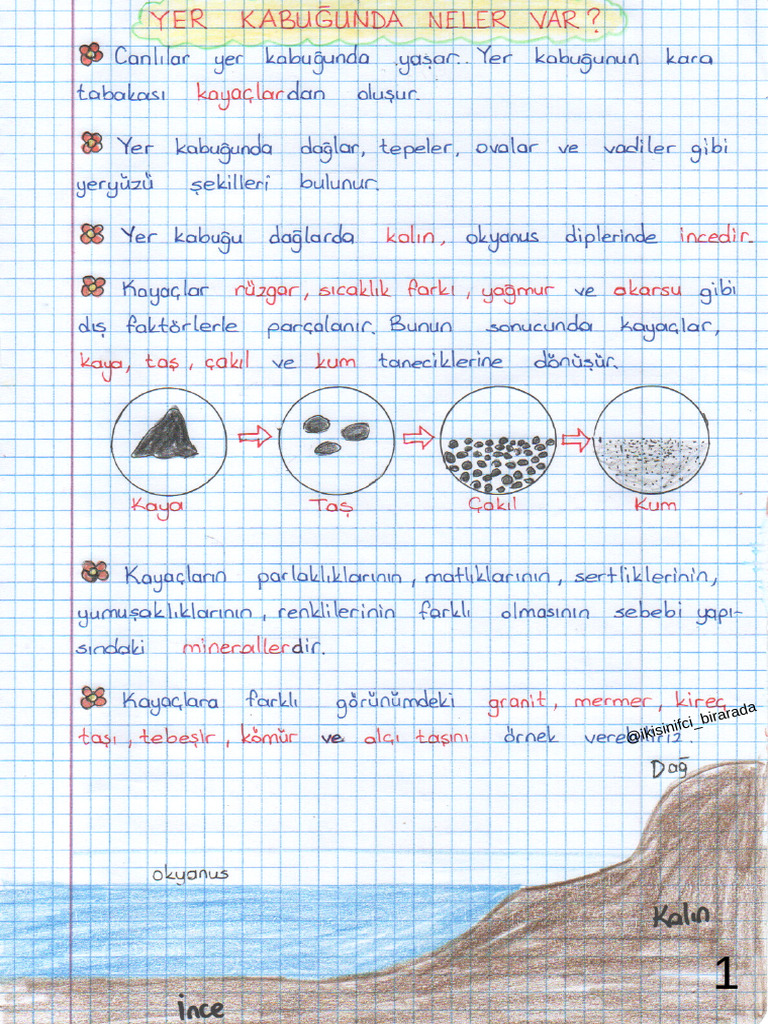 YER KABUĞUNDA NELER VAR?
Canlılar yer kabuğunda yaşar. Yer kabuğunun kara
tabakası kayaçlardan oluşur.
Yer kabuğunda dağlar, tepeler, ovalar ve vadiler gibi
yeryüzü şekilleri bulunur.
Yer kabuğu dağlarda kalın, okyanus diplerinde incedir.
Kayaçlar rüzgar, sıcaklık farkı, yağmur ve akarsu gibi
dış faktörlerle parçalanır. Bunun sonucunda kayaçlar,
kaya, taş, çakıl ve kum taneciklerine dönüşür.
Kaya Taş Çakıl Kum
Kayaçların parlaklıklarının, matlıklarının, sertliklerinin,
yumuşaklıklarının, renklilerinin farklı olmasının sebebi yapı-
sındaki minerallerdir.
Kayaçlara farklı görünümdeki granit, mermer, kireç
@ikisinifci_birarada
taşı, tebeşir, kömür ve alçı taşını örnek verebiliriz.
Dağ
okyanus
Kalın
1
İnce